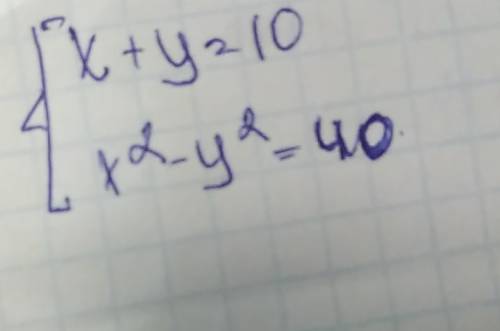 x + y = 10
x² - y² = 40